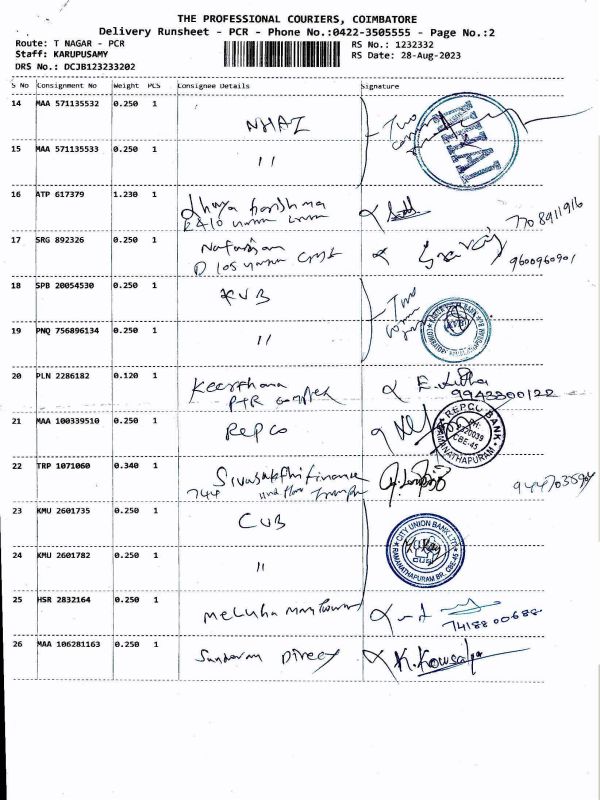 THE PROFESSIONAL COURIERS, COIMBATORE
Delivery Runsheet - PCR - Phone No.:0422-3505555 - Page No.:2
Route: T NAGAR - PCR
RS No.: 1232332
Staff: KARUPUSAMY
RS Date: 28-Aug-2023
DRS No.: DCJB123233202
S No Consignment No Weight PCS Consignee Details Signature
14 MAA 571135532 0.250 1 NHAI Two
NHAI
15 MAA 571135533 0.250 1 "
16 ATP 617379 1.230 1
7708911916
17 SRG 892326 0.250 1
D 105
9600960901
18 SPB 20054530 0.250 1 KVB Two
19 PNQ 756896134 0.250 1 "
20 PLN 2286182 0.120 1 Keerthana
PTR complex
9943800122
21 MAA 100339510 0.250 1 Repco
REPCO BANK
PH:
CBE-45
RAMANATHAPURAM
22 TRP 1071060 0.340 1 Sivasakthi Finance
744 IInd floor
23 KMU 2601735 0.250 1 CUB
CITY UNION BANK LTD
CUB
RAMANATHAPURAM BR. CBE-45
24 KMU 2601782 0.250 1 "
25 HSR 2832164 0.250 1 Meluha
7418800688
26 MAA 106281163 0.250 1 Sundaram Direct K. Kowsalya